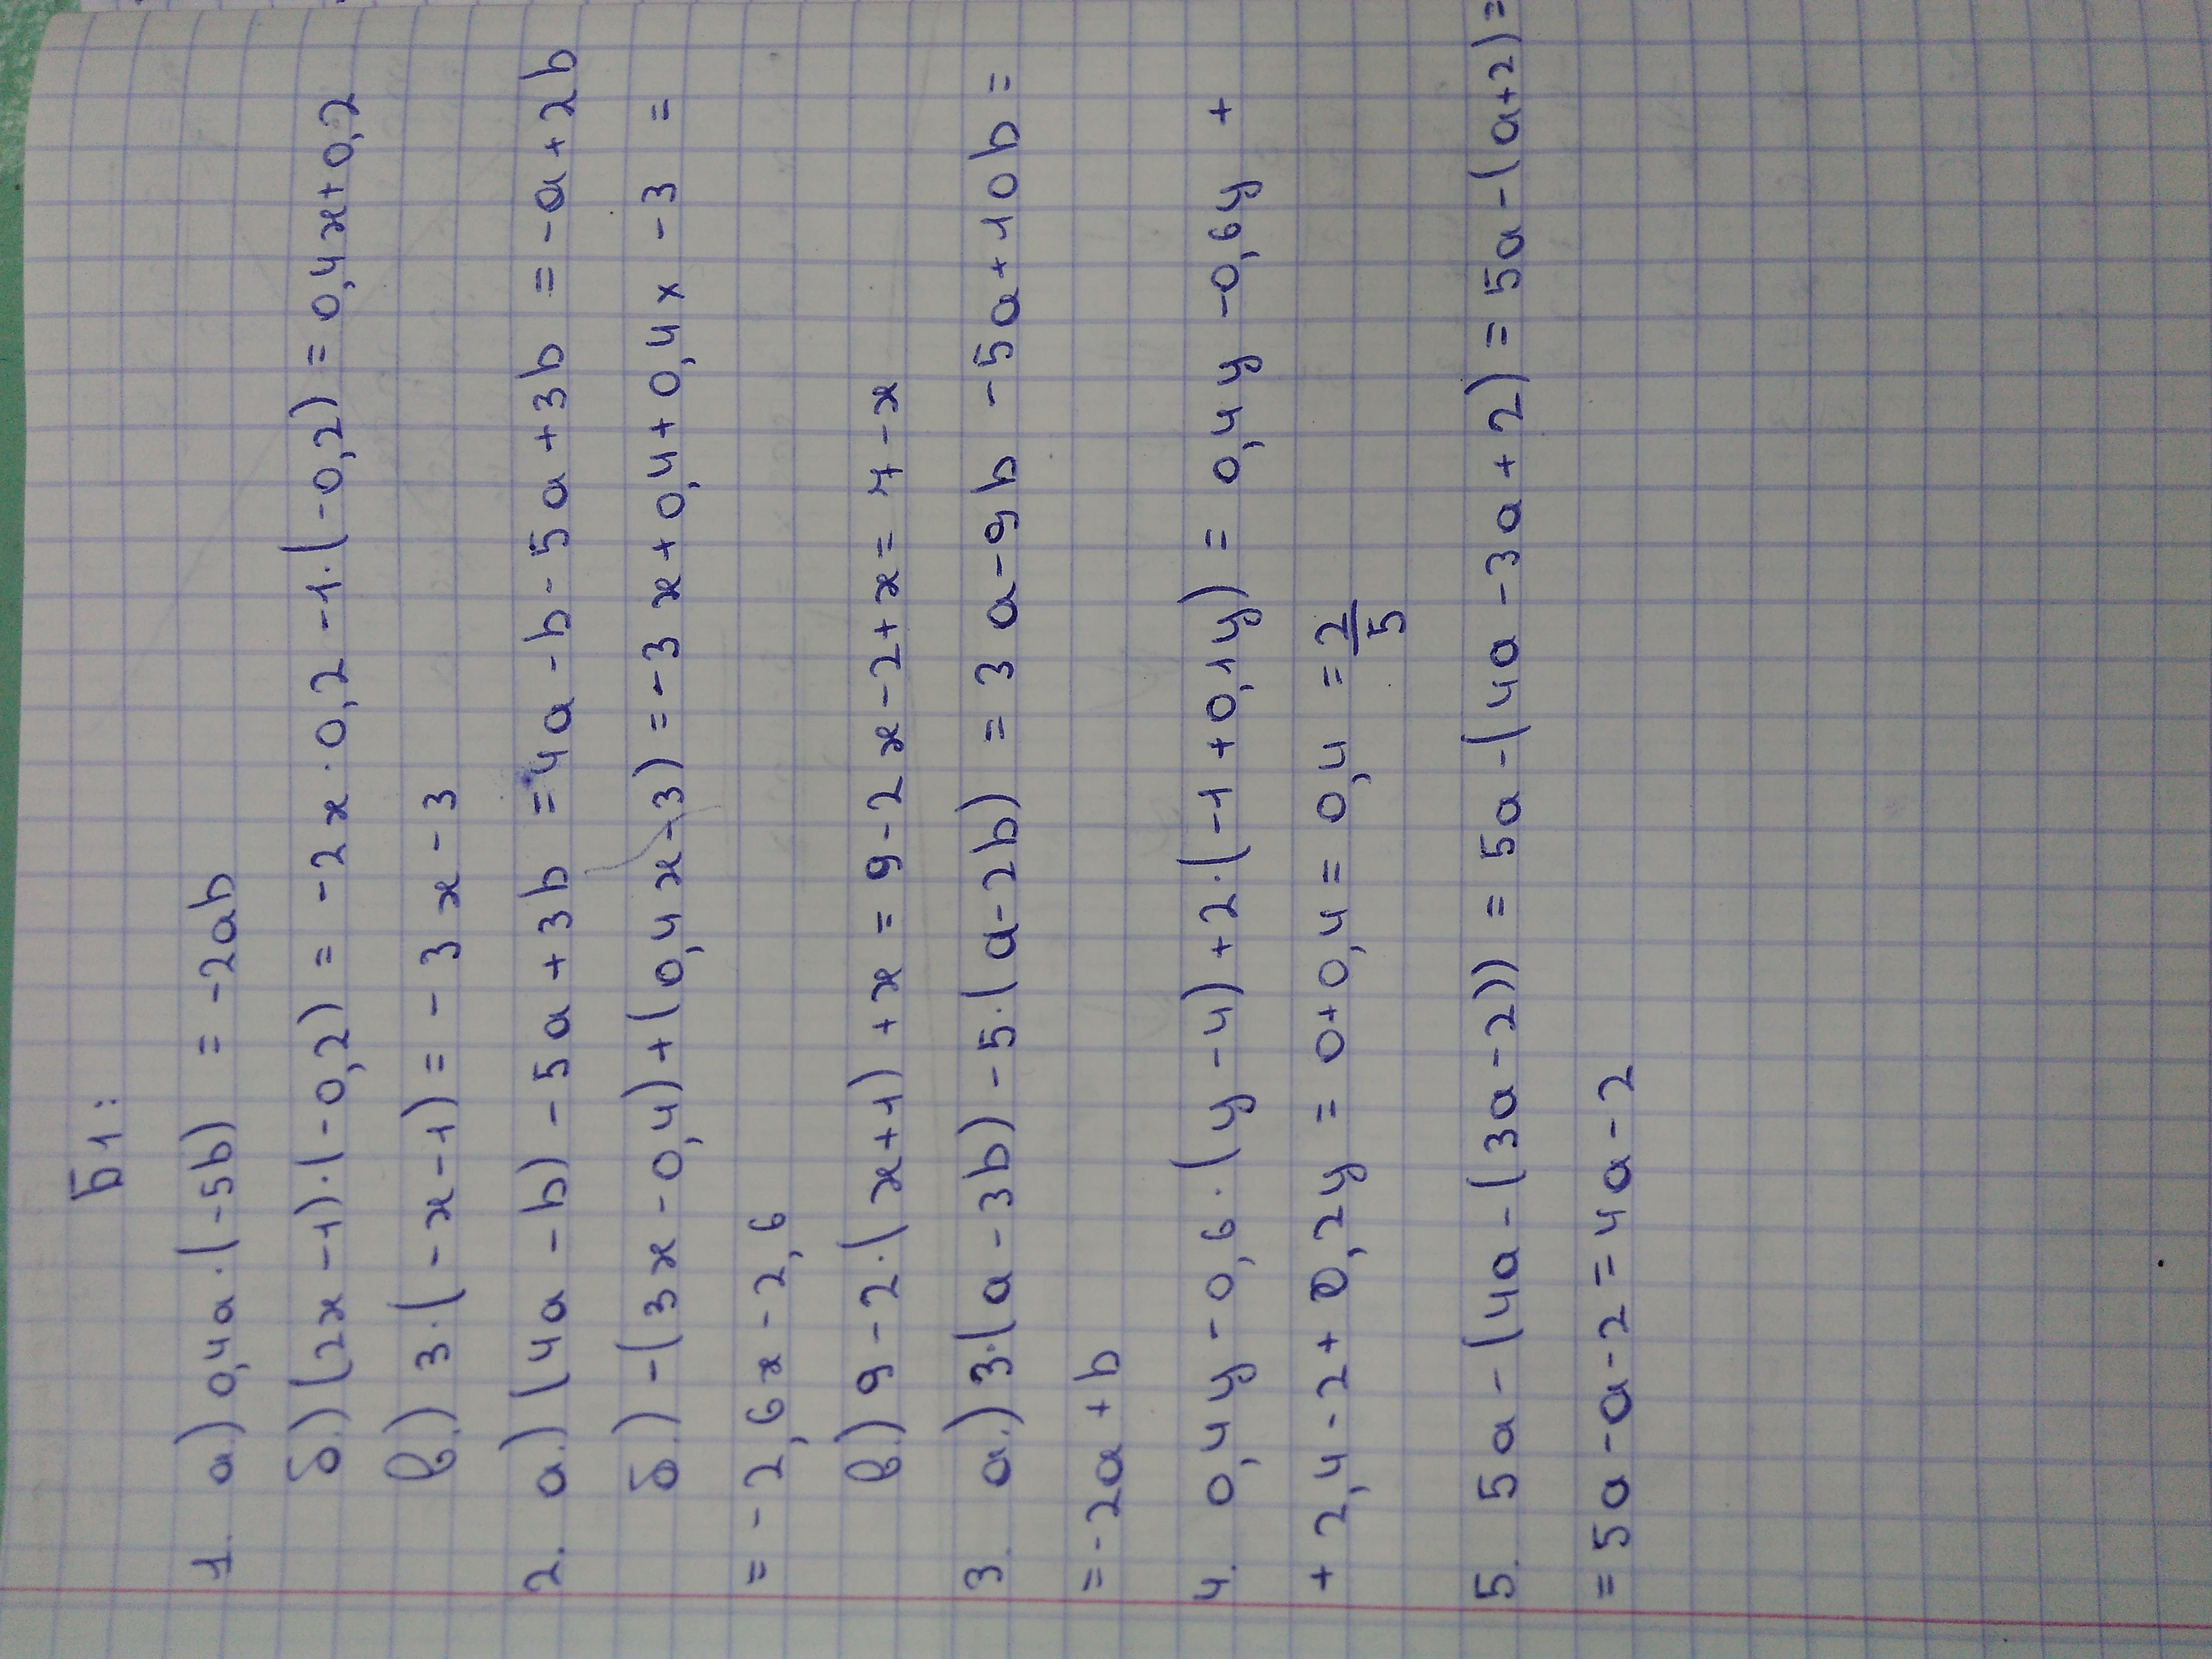 Б1:
1. а.) 0,4a·(-5b) = -2ab
б.) (2x-1)·(-0,2) = -2x·0,2-1·(-0,2) = 0,4x+0,2
в.) 3·(-x-1) = -3x-3
2. а.) (4a-b)-5a+3b = 4a-b-5a+3b = -a+2b
б.) -(3x-0,4)+(0,4x-3) = -3x+0,4+0,4x-3 =
= -2,6x-2,6
в.) 9-2·(x+1)+x = 9-2x-2+x = 7-x
3. а.) 3·(a-3b)-5·(a-2b) = 3a-9b-5a+10b =
= -2a+b
4. 0,4y-0,6·(y-4)+2·(-1+0,1y) = 0,4y-0,6y+
+2,4-2+0,2y = 0+0,4 = 0,4 = 2/5
5. 5a-(4a-(3a-2)) = 5a-(4a-3a+2) = 5a-(a+2) =
= 5a-a-2 = 4a-2